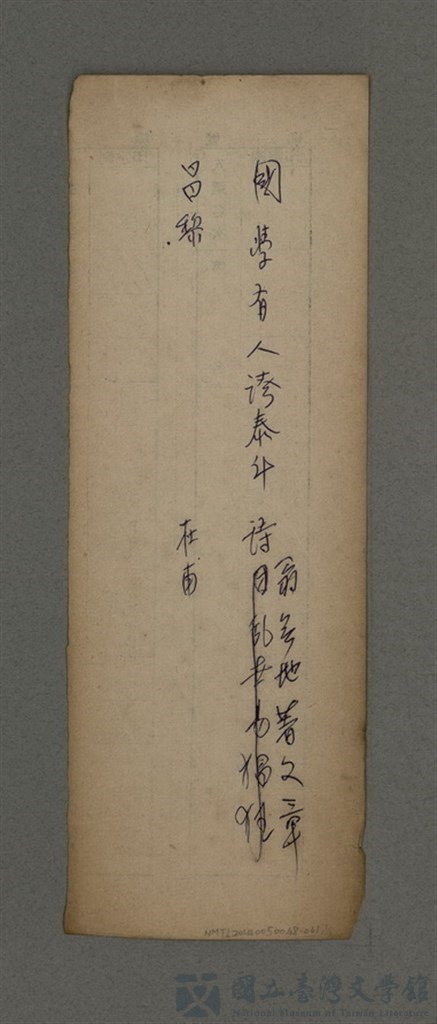 國學有人誇泰斗 詩
翁無地著文章
昌黎 杜甫
NMTL20100050048-061
國立臺灣文學館
National Museum of Taiwan Literature